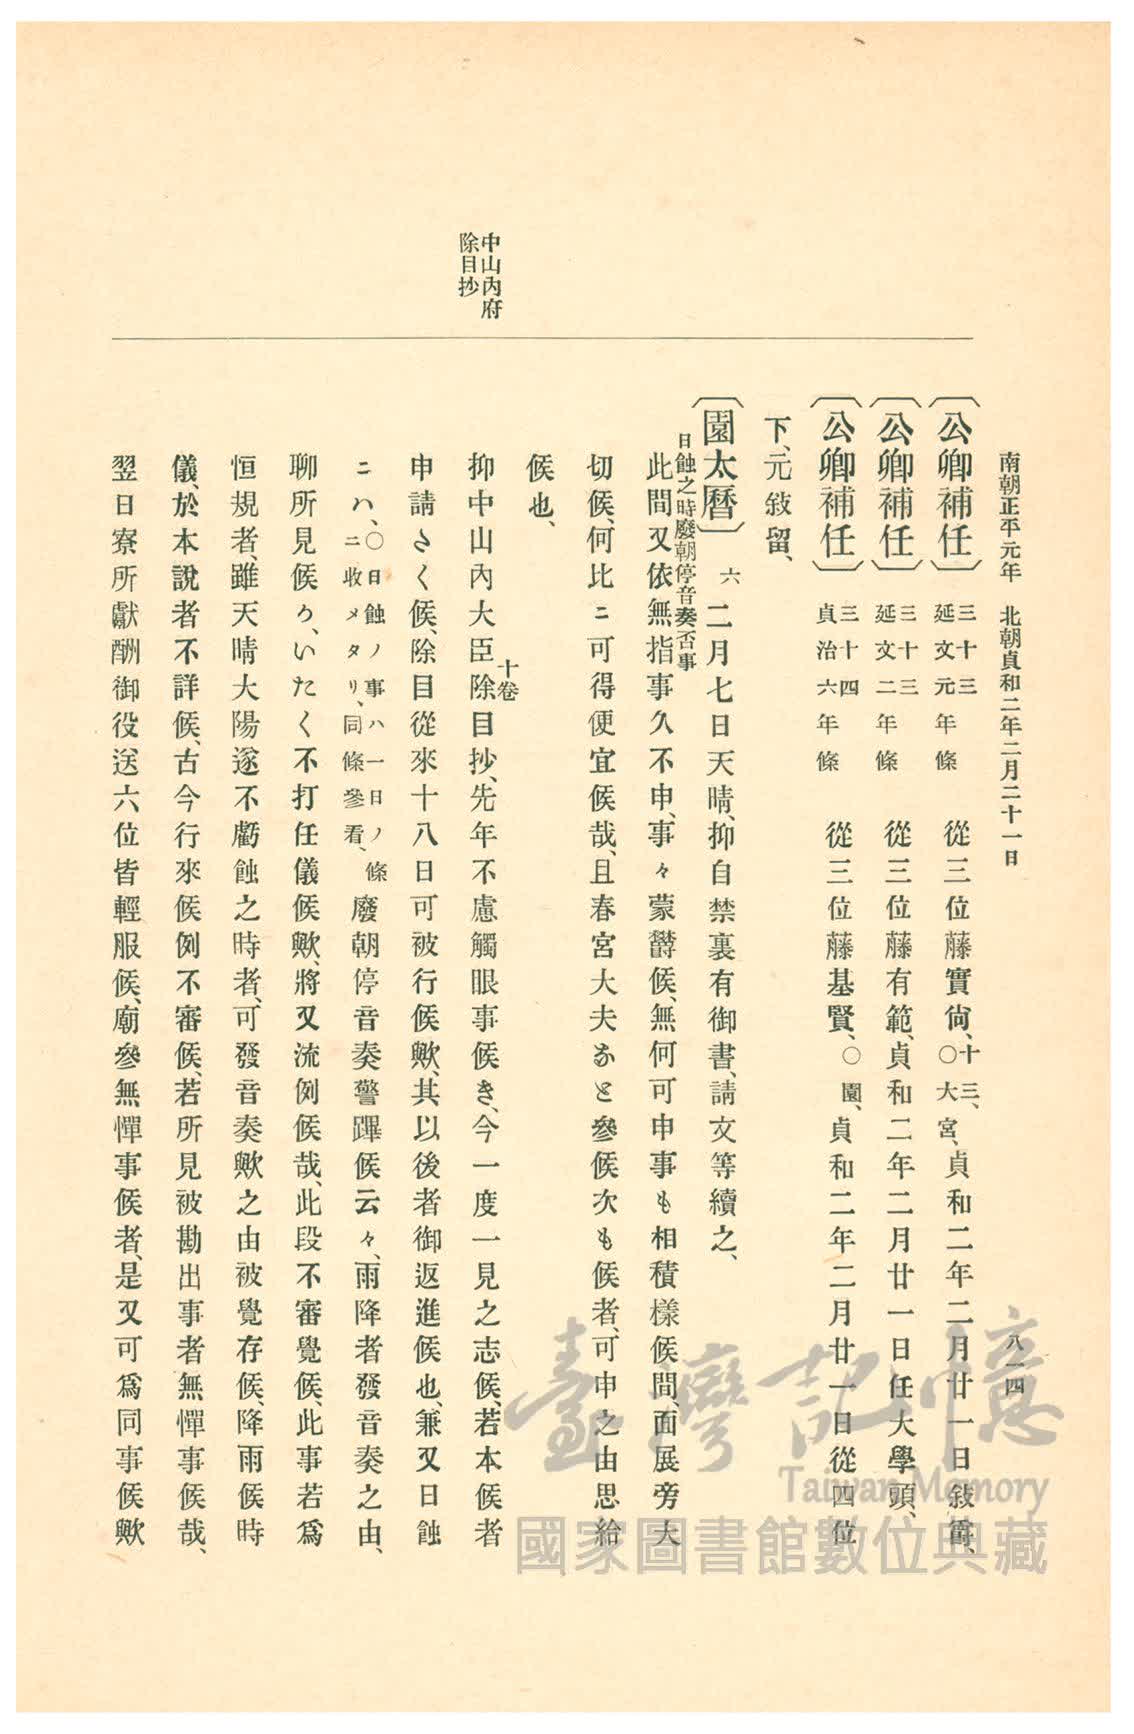 南朝正平元年　北朝貞和二年二月二十一日　八一四
〔公卿補任〕三十三延文元年條　從三位藤實尙、十三、○大宮、貞和二年二月廿一日敍爵、
〔公卿補任〕三十三延文二年條　從三位藤有範、貞和二年二月廿一日任大學頭、
〔公卿補任〕三十四貞治六年條　從三位藤基賢、○園、貞和二年二月廿一日從四位
下、元敍留、
〔園太曆〕六　二月七日天晴、抑自禁裏有御書、請文等續之、
日蝕之時廢朝停音奏否事
此間又依無指事久不申、事々蒙鬱候、無何可申事も相積樣候間、面展旁大
切候、何比ニ可得便宜候哉、且春宮大夫なと參候次も候者、可申之由思給
候也、
中山內府
除目抄
十卷
抑中山內大臣除目抄、先年不慮觸眼事候き、今一度一見之志候、若本候者
申請たく候、除目從來十八日可被行候歟、其以後者御返進候也、兼又日蝕
ニハ、○日蝕ノ事ハ一日ノ條ニ收メタリ、同條參看、廢朝停音奏警蹕候云々、雨降者發音奏之由、
聊所見候ろ、いたく不打任儀候歟、將又流例候哉、此段不審覺候、此事若爲
恒規者、雖天晴大陽遂不虧蝕之時者、可發音奏歟之由被覺存候、降雨候時
儀、於本說者不詳候、古今行來候例不審候、若所見被勘出事者無憚事候哉、
翌日寮所獻酬御役送六位皆輕服候、廟參無憚事候者、是又可爲同事候歟
臺灣記憶
Taiwan Memory
國家圖書館數位典藏